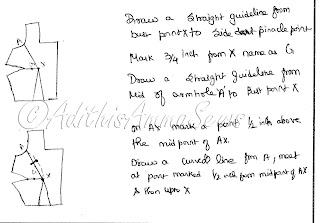 Draw a straight guideline from
bust point X to side dart pinacle point
Mark 3/4 inch from X name as G
Draw a straight Guideline from
Mid of armhole 'A' to Bust point X
©AdithisAmmaSews
On AX mark a point 1/2 inch above
the midpoint of AX.
Draw a curved line from A, meet
at point marked 1/2 inch from midpoint of AX
& then upto X
A
X
A
X